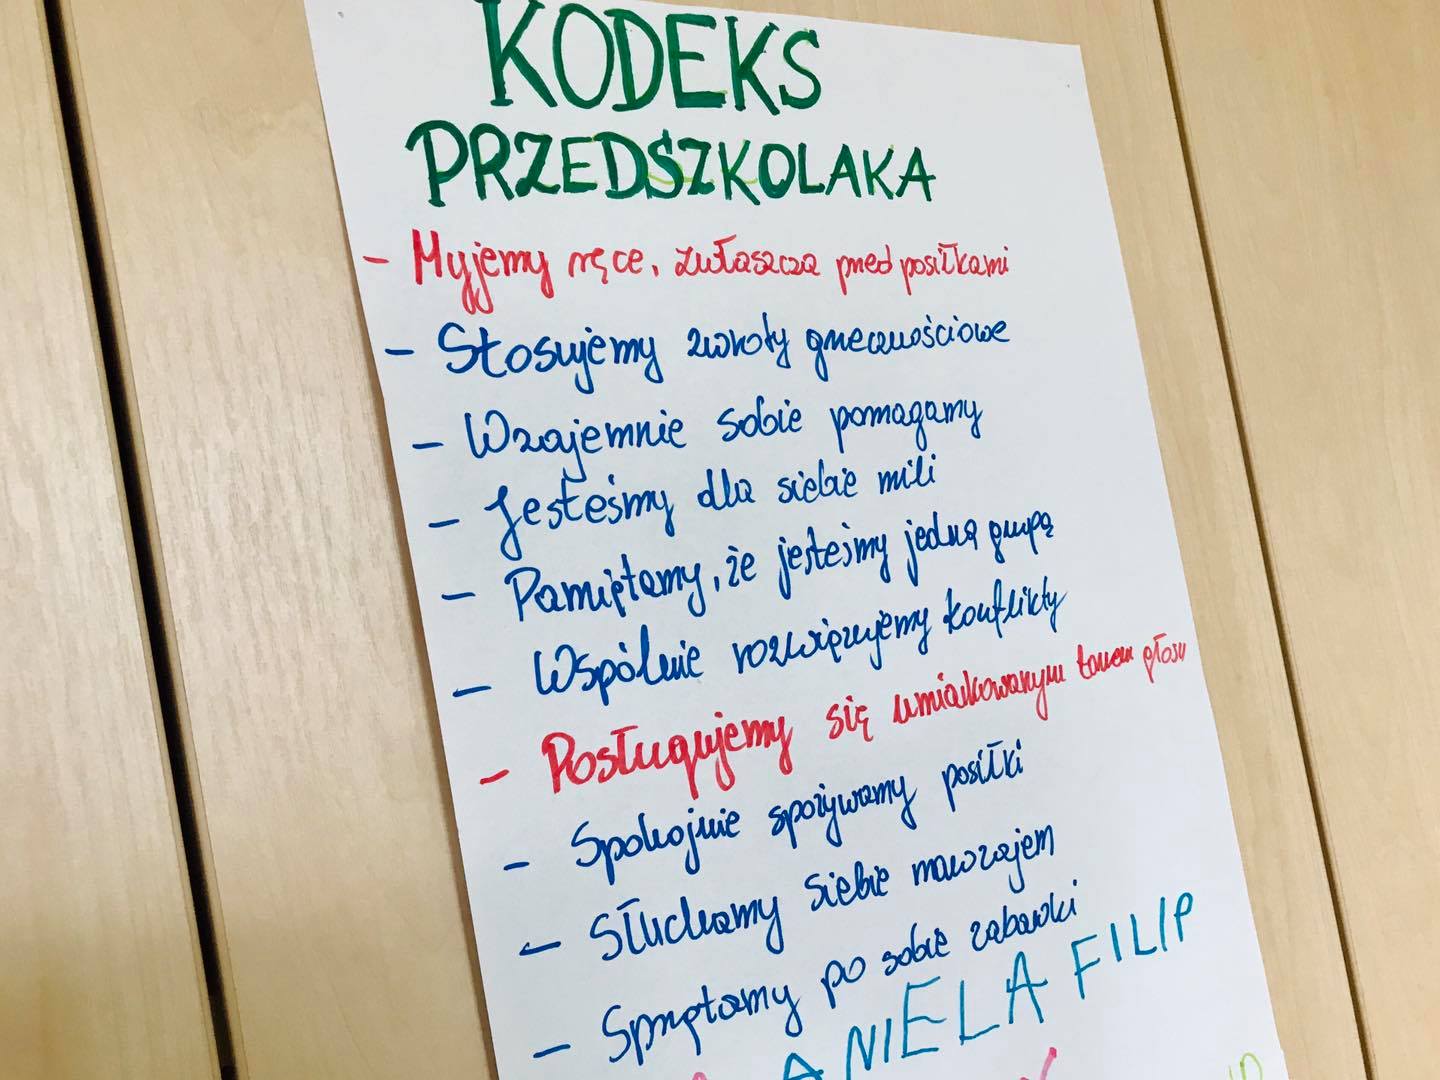 KODEKS
PRZEDSZKOLAKA
- Myjemy ręce, zwłaszcza przed posiłkami
- Stosujemy zwroty grzecznościowe
- Wzajemnie sobie pomagamy
- Jesteśmy dla siebie mili
- Pamiętamy, że jesteśmy jedną grupą
- Wspólnie rozwiązujemy konflikty
- Posługujemy się umiarkowanym tonem głosu
- Spokojnie spożywamy posiłki
- Słuchamy siebie nawzajem
- Sprzątamy po sobie zabawki
ANIELA FILIP